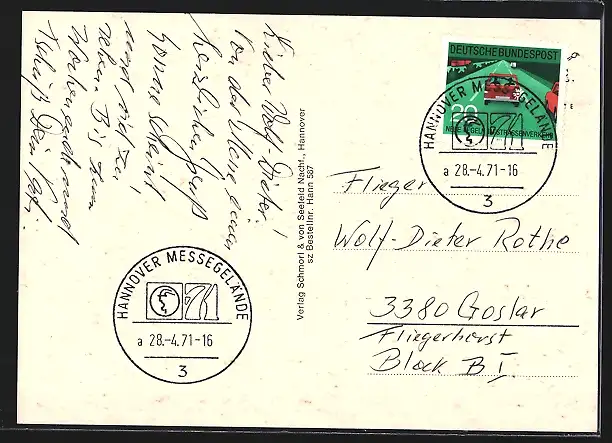 Lieber Wolf-Dieter!
Von der Messe einen
herzlichen Gruß
Sonne scheint
und
Bis zum
Wochenende und
Tschüß Dein
Verlag Schmorl & von Seefeld Nachf., Hannover
sz Bestellnr. Hann 587
DEUTSCHE BUNDESPOST
20
NEUE REGELN IM STRASSENVERKEHR
HANNOVER MESSEGELÄNDE
71
a 28.-4.71-16
3
Flieger
Wolf-Dieter Rothe
3380 Goslar
Fliegerhorst
Block B I
HANNOVER MESSEGELÄNDE
71
a 28.-4.71-16
3